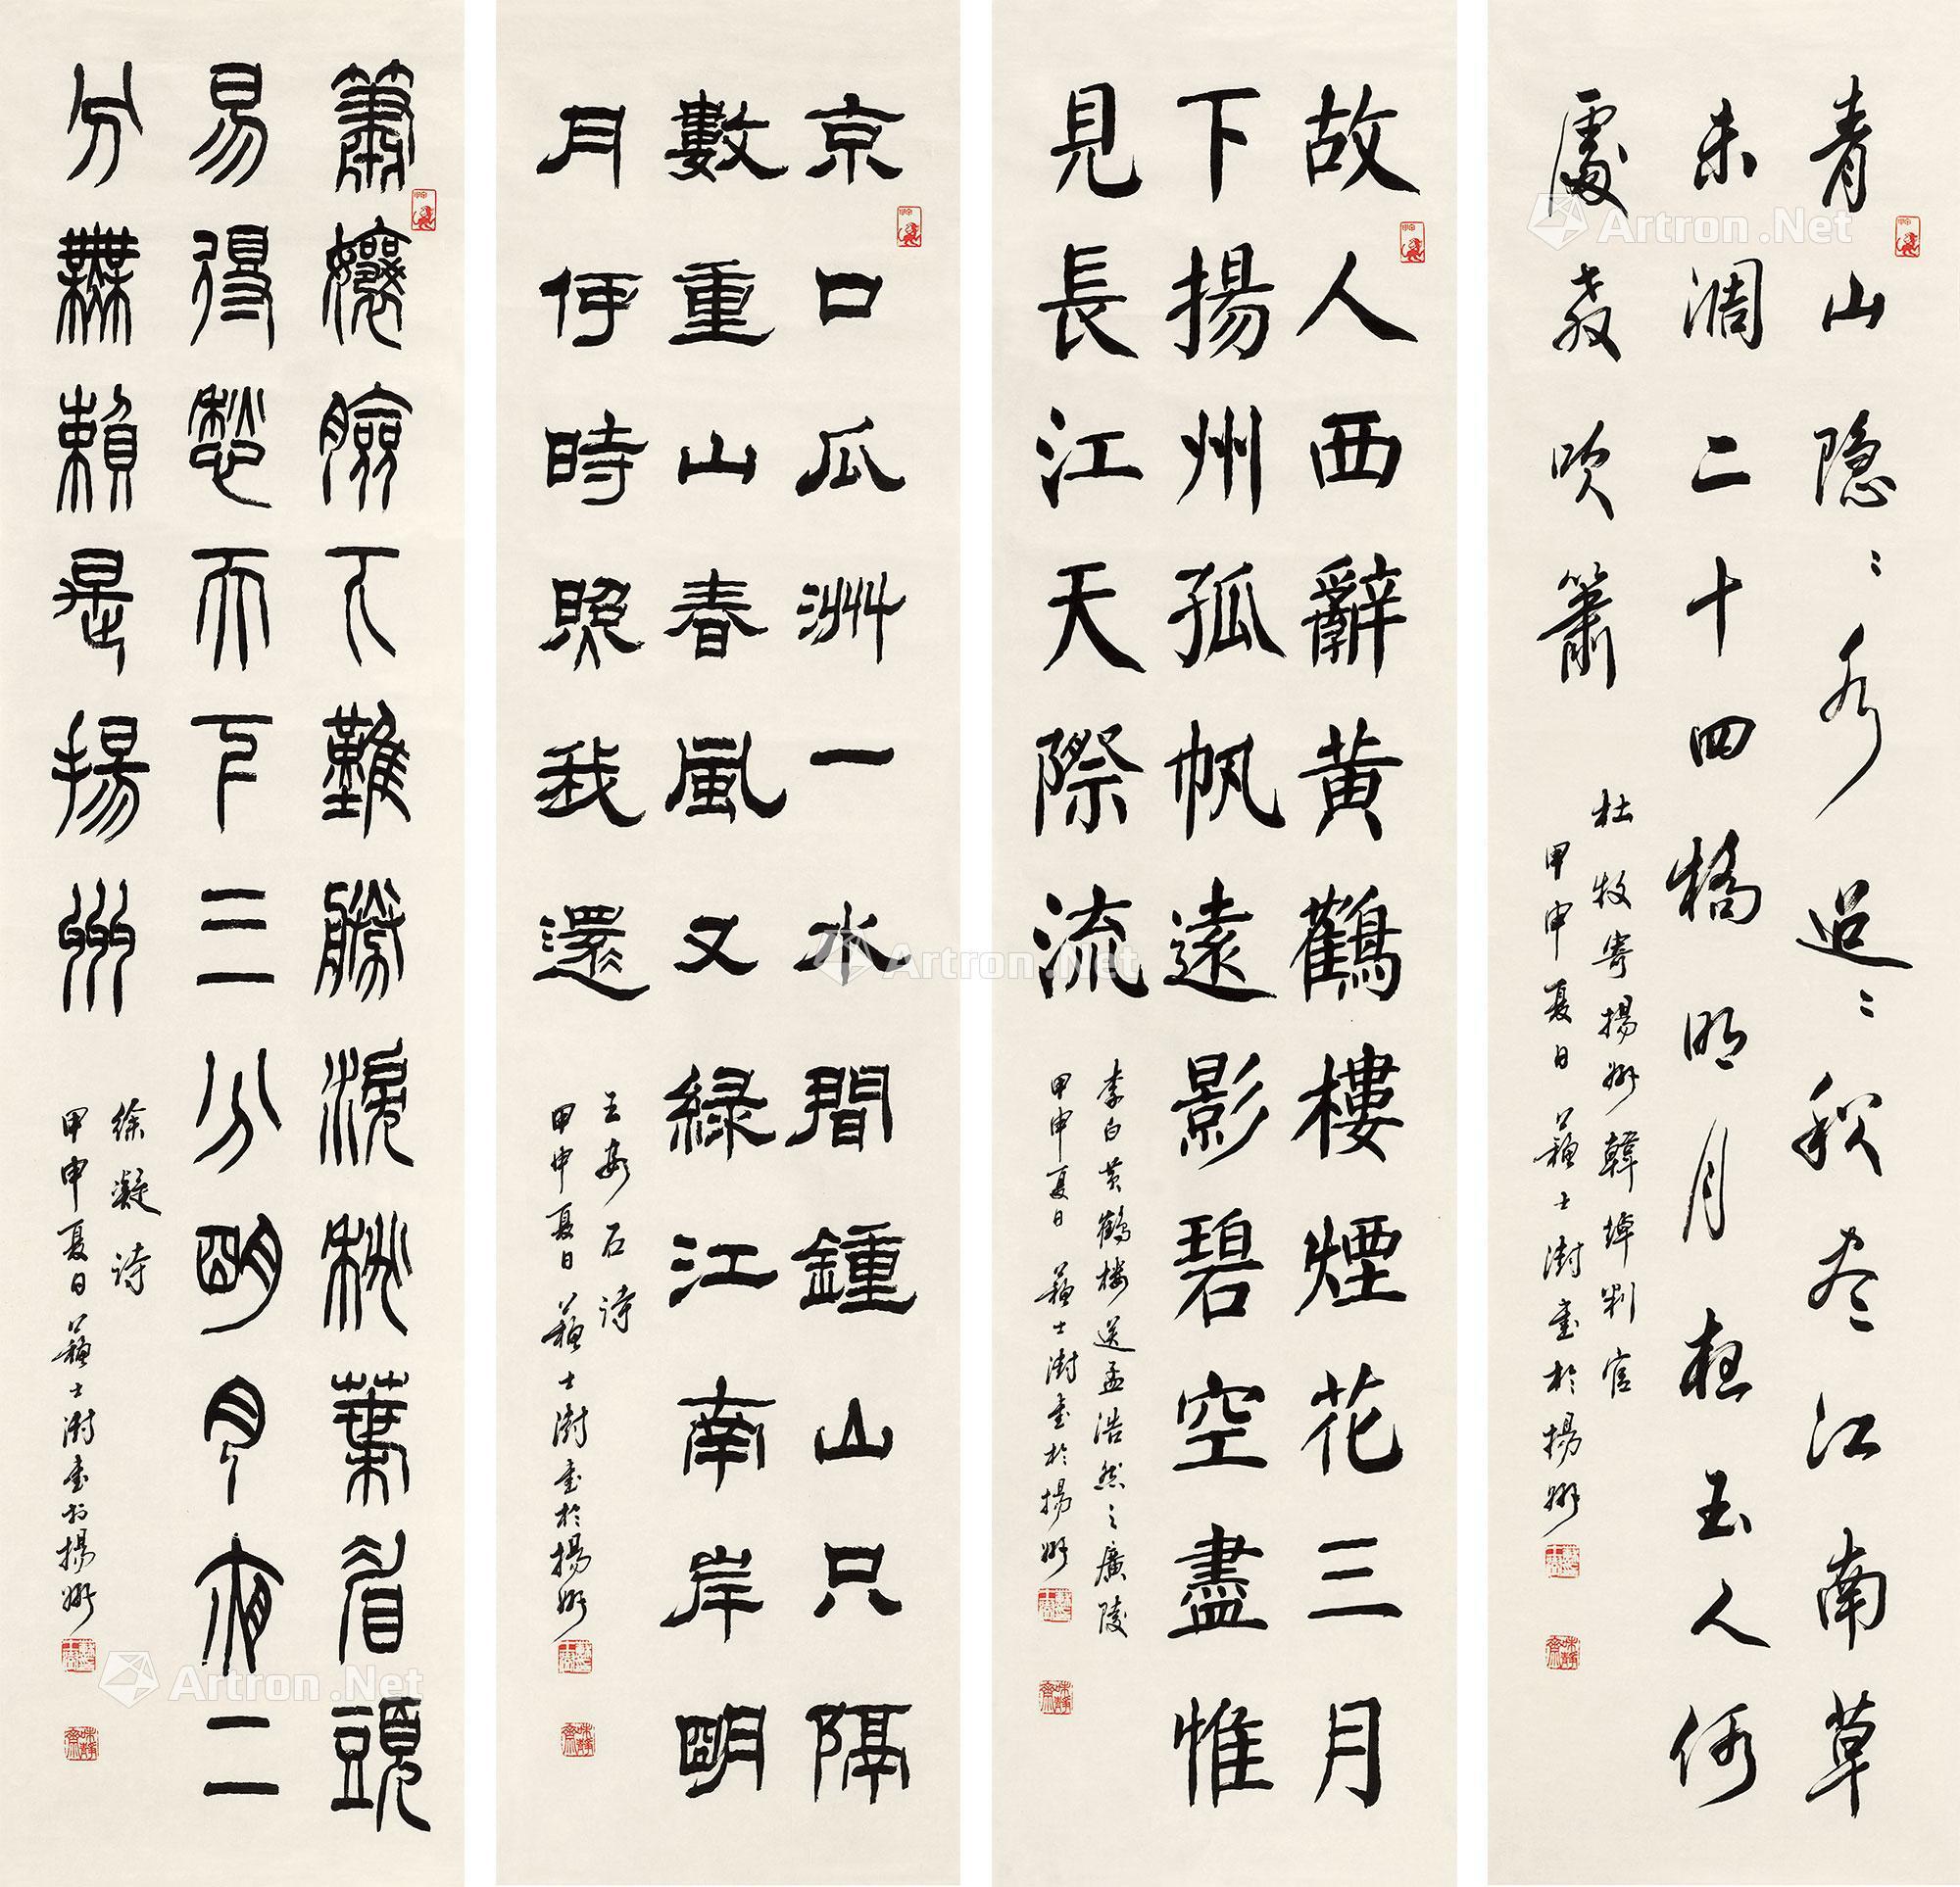 青山隐〻水迢〻秋尽江南草
未凋二十四橋明月夜玉人何
處教吹簫
杜牧寄揚州韓綽判官
甲申夏日蘇士澍書於揚州
蘇士澍
味靜齋
故人西辭黄鶴樓煙花三月
下揚州孤帆遠影碧空盡惟
見長江天際流
李白黄鶴楼送孟浩然之廣陵
甲申夏日蘇士澍書於揚州
蘇士澍
味靜齋
京口瓜洲一水間鍾山只隔
數重山春風又緑江南岸明
月何時照我還
王安石詩
甲申夏日蘇士澍書於揚州
蘇士澍
味靜齋
蕭孃臉下難勝淚桃葉眉頭
易得愁天下三分明月夜二
分無賴是揚州
徐凝詩
甲申夏日蘇士澍書於揚州
蘇士澍
味靜齋
Artron.Net
Artron.Net
Artron.Net